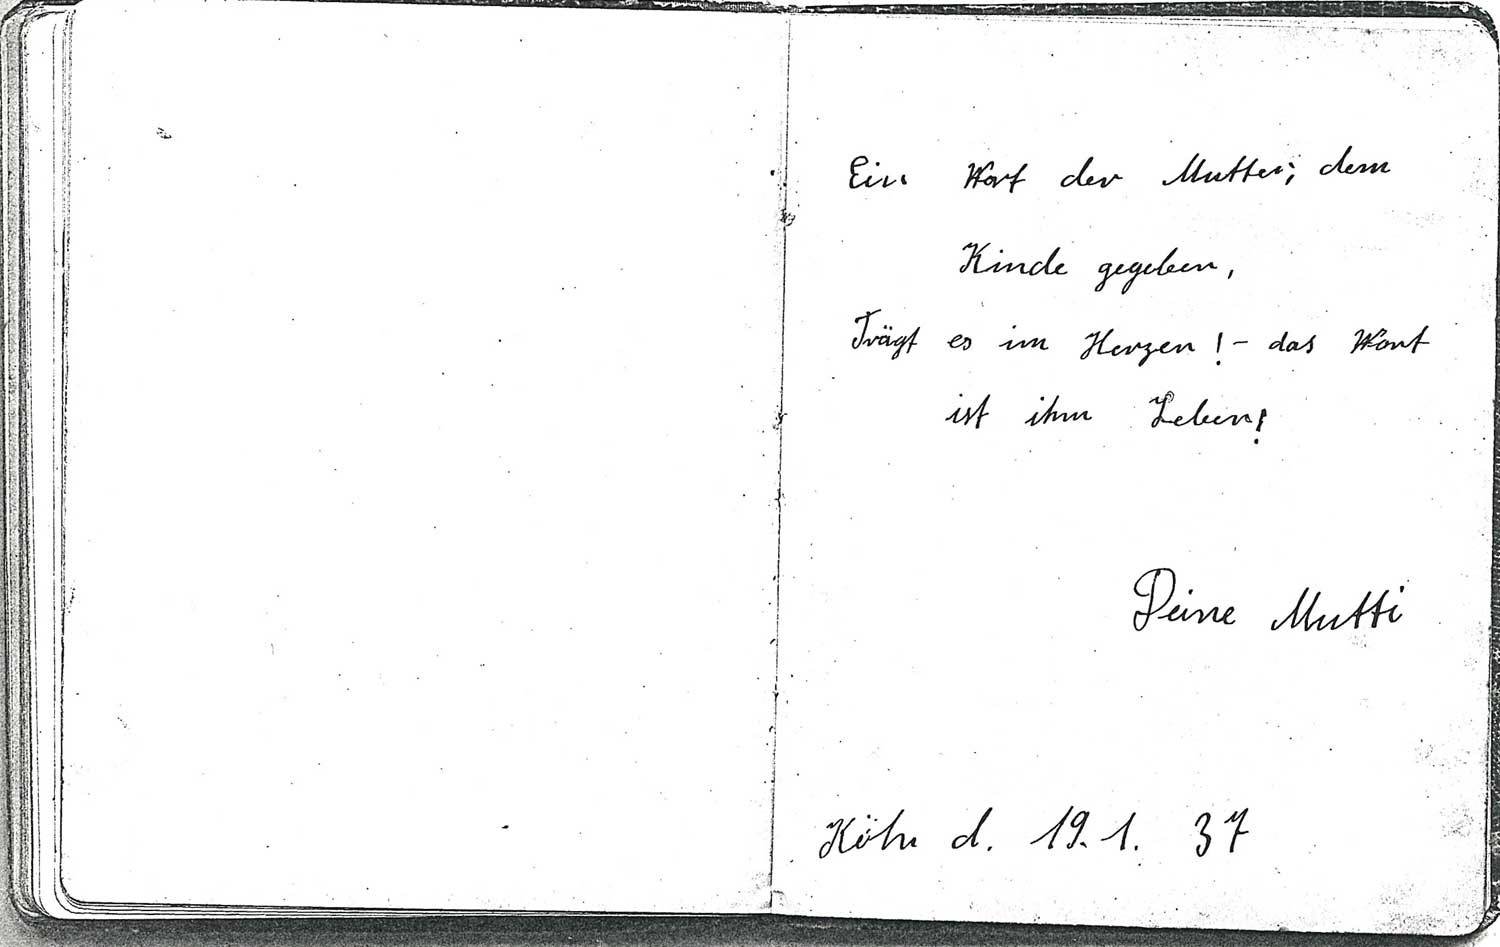 Ein Wort der Mutter, dem
Kinde gegeben,
Trägt es im Herzen! - das Wort
ist ihm Leben!
Deine Mutti
Köln d. 19. 1. 37